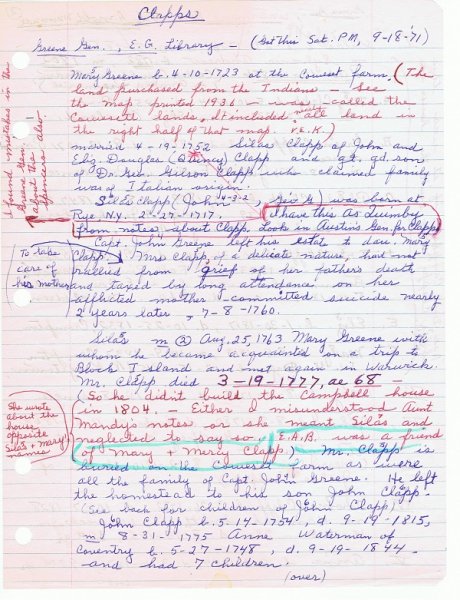 Clapps
Greene Gen., E.G. Library — (Got this Sat. P.M, 9-18-'71)
Mary⁵ Greene b. 4-10-1723 at the Cowset farm. (The
land purchased from the Indians — See
the map printed 1936 — was called the
Cowesett lands. It included nearly all land in
the right half of that map. V.E.K.)
married 4-19-1752 Silas Clapp of John and
Eliz. Douglas (Quincy) Clapp and gt. gd. son
of Dr. Geo. Gilson Clapp who claimed family
was of Italian origin.
Silas Clapp (John 4-3-2, Geo G) was born at
Rye N.Y. 2-27-1717. I have this as Quimby
from notes about Clapp. Look in Austin's Gen. for Clapp
Capt. John Greene left his estate to dau. Mary
Clapp. Mrs Clapp, of a delicate nature, had not
rallied from grief of her father's death
and taxed by long attendance on her
afflicted mother — committed suicide nearly
2 years later, 7-8-1760.
Silas m ② Aug. 25, 1763 Mary Greene with
whom he became acquainted on a trip to
Block Island and met again in Warwick.
Mr. Clapp died 3-19-1777, ae 68 —
(So he didn't build the Campbell house
in 1804. — Either I misunderstood Aunt
Mandy's notes or she meant Silas and
neglected to say so. E.A.B. was a friend
of Mary + Mercy Clapp.) Mr. Clapp is
buried on the Coweset farm as were
all the family of Capt. John Greene. He left
the homestead to his son John Clapp.
(See back for children of John Clapp)
John Clapp b. 5-14-1754, d. 9-19-1815,
m 8-31-1775 Anne Waterman of
Coventry b. 5-27-1748, d. 9-19-1844
and had 7 children.
(over)
I found mistakes in the
Greene Gen.
about the
Spencers also
To take
care of
his mother
She wrote
about the
house
opposite
Silas + Mary's
names